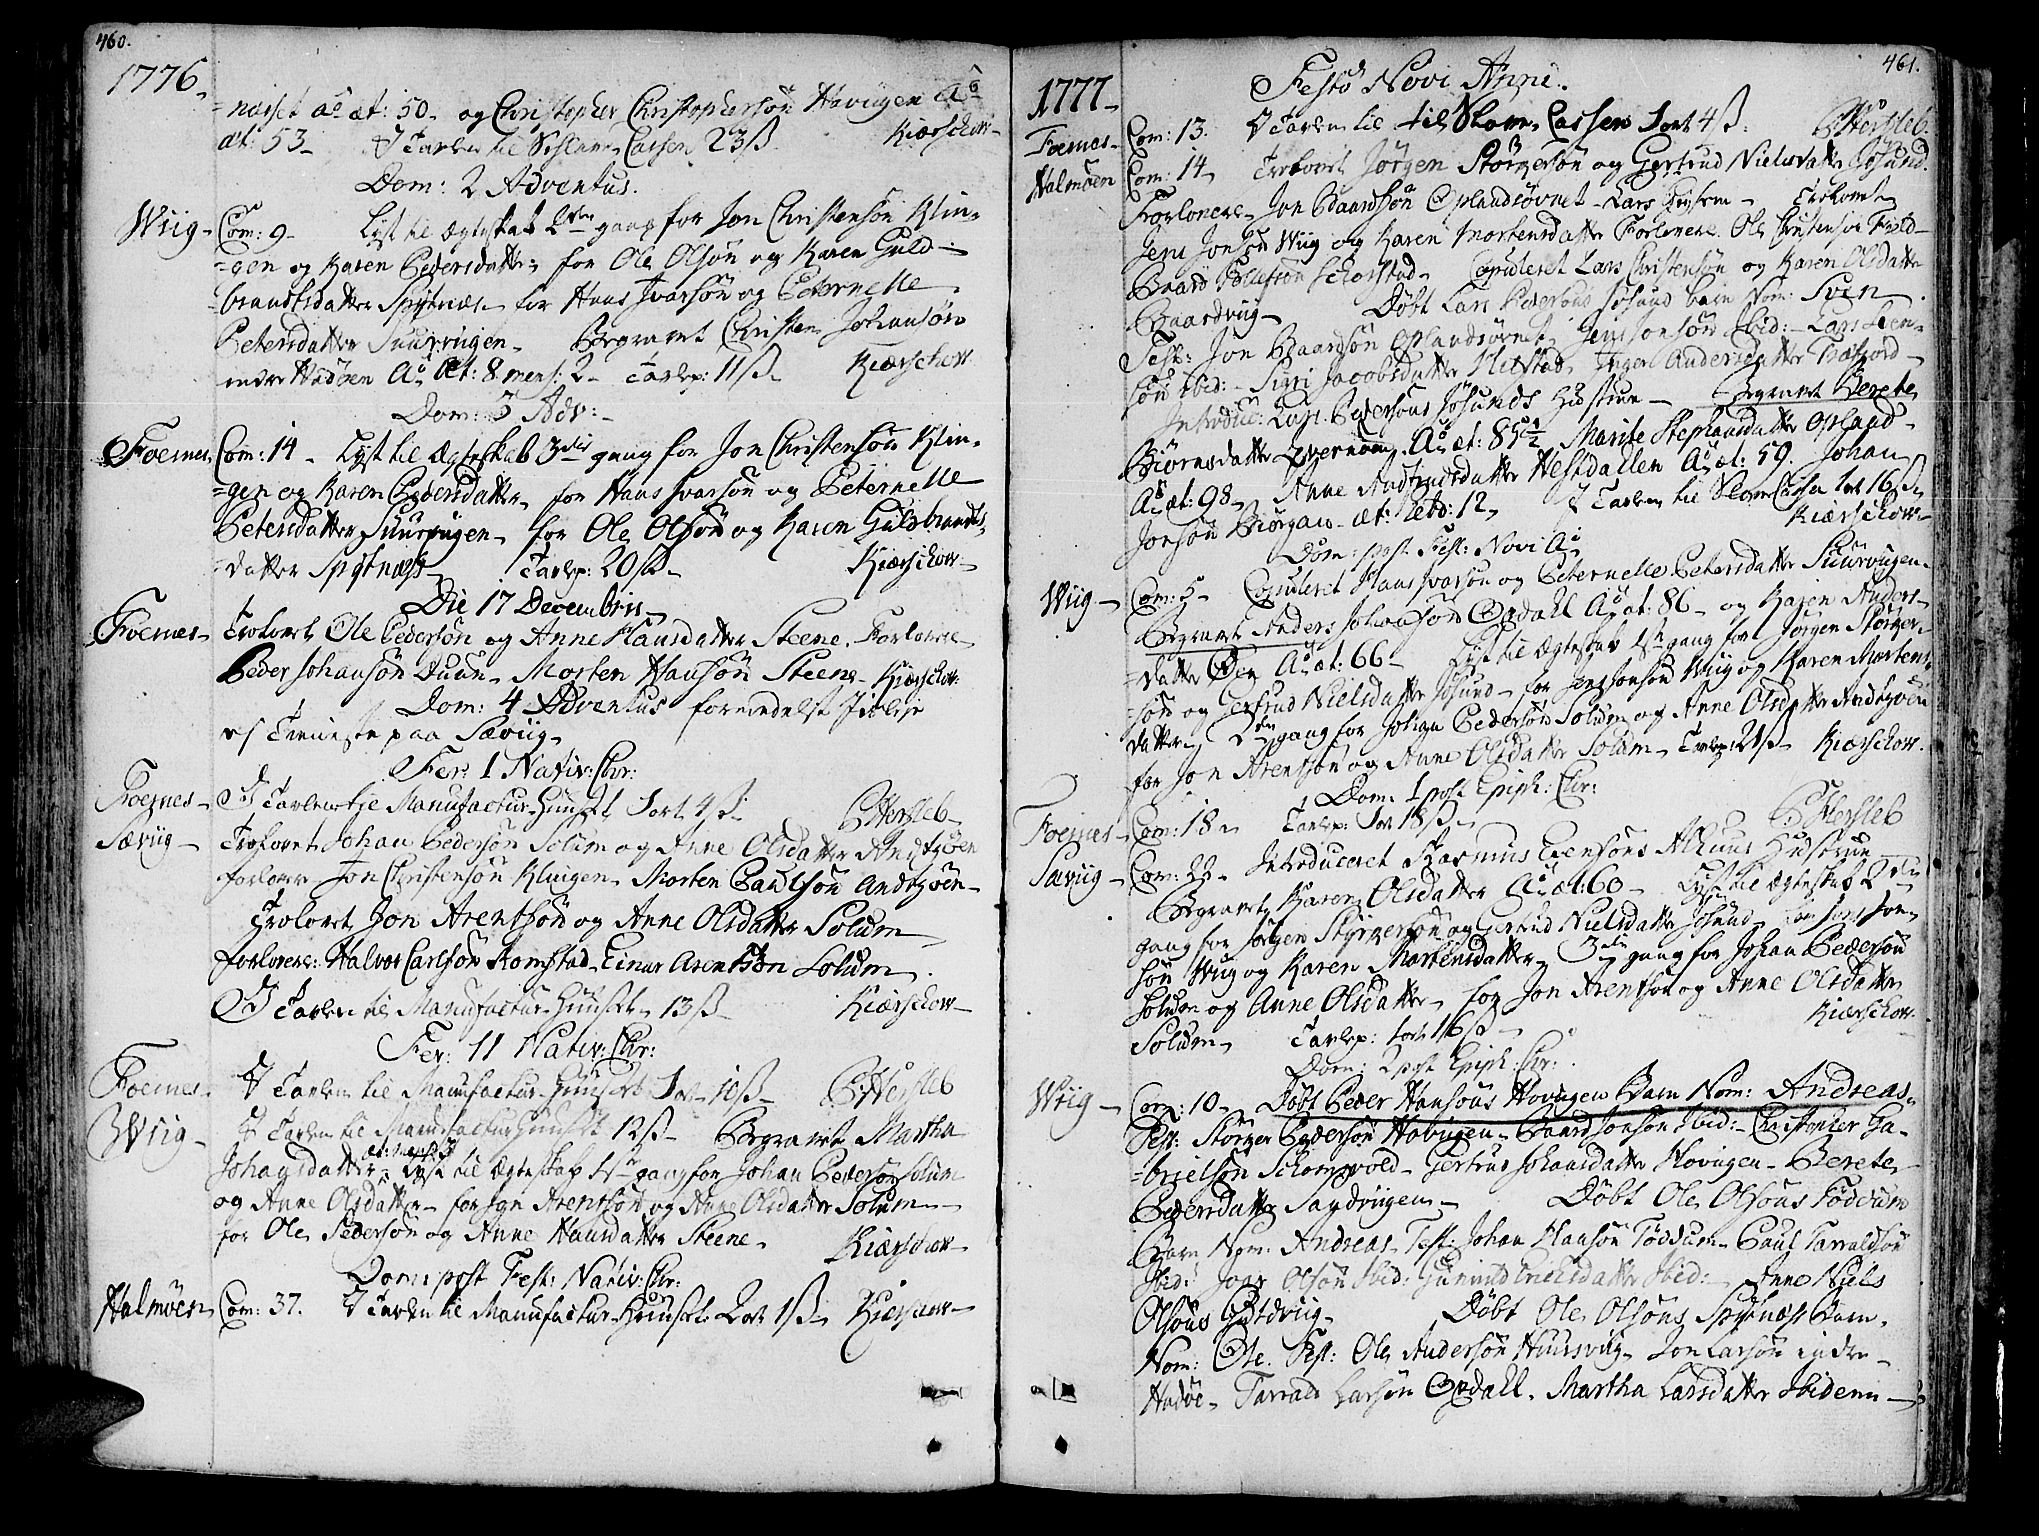 460.
1776_
=næset aõ æt: 50_ og Christopher Christophersøn Havügen Aõ
æt: 53_ I Tavlen til Sslav: Cassen 23ß_ Kiærschow_
Dom: 2 Adventus.
Wiig_ Com: 9_ Lyst til Ægteskab 2den gang for Jon Christensøn Klin=
=gen og Karen Pedersdatter; for Ole Olsøn og Karen Guld=
=brandtsdatter Spytnæs_ for Hans Ivarsøn og Peternelle
Petersdatter Suurviigen_ Begravet Christen Johansøn
indre Hadøen Aõ Æt: 8 mens: 2_ Tavlep: 11ß_ Kiærschow
Dom: 3 Adv:_
Foernes_ Com: 14_ Lyst til Ægteskab 3die gang for Jon Christensøn Klin=
=gen og Karen Pedersdatter_ for Hans Ivarsøn og Peternelle
Petersdatter Suurviigen_ for Ole Olsøn og Karen Guldbrandts=
=datter Spytnæss_ Tavlep: 20ß_ Kiærschow_
Die 17 Decembris_
Foernes_ Trolovet Ole Pedersøn og Anne Hansdatter Steene. Forlovere
Peder Johansøn Duun_ Morten Hansøn Steene_ Kiærschow.
Dom: 4 Adventus formedelst
Tieneste paa Sævüg_
Fer: 1 Nativ: Chr:
Foernes_ I Tavlen til Manufactur Huuset 1ort 4ß_ CHersleb_
Sævüg_ Trolovet Johan Pedersøn Solum og Anne Olsdatter Andtzøen
forlovere_ Jon Christensøn Klingen_ Morten Paulsøn Andtzøen_
Trolovet Jon Arentsøn og Anne Olsdatter Solum_
forlovere: Halvor Carlsøn Romstad_ Einar Arentsøn Solum_
I Tavlen til Manufactur Huuset_ 13ß_ Kiærschow_
Fer: 11 Nativ: Chr:
Foernes_ I Tavlen til Manufactur Huuset 1ort_ 10ß_ CHersleb
Wiig_ I Tavlen til Manufactur Huuset 12ß_ Begravet Martha
Johansdatter_ Lyst til Ægteskab 1ste gang for Johan Pedersøn Solum
og Anne Olsdatter_ for Jon Arentsøn og Anne Olsdatter Solum_
for Ole Pedersøn og Anne Hansdatter Steene_ Kiærschow_
Dom: post Fest: Nativ: Chr:
Halmöen_ Com: 37. I Tavlen til Manufactur Huuset 2ort 1ß_ Kiærschow_
461.
1777_ Festo Novi Anni.
Foernes_ Com: 13. I Tavlen til til Slav: Cassen 1ort 4ß. CHersleb.
Halmöen Com: 14_ Trolovet Jørgen Størgersøn og Gertrud Nielsdatter Jøsund.
Forlovere_ Jon Baardsøn Oplandsøvnet_ Lars Trolovet
Jens Jonsøn Wiig og Karen Mortensdatter Forlovere. Ole Christensøn
Baard Copuleret Lars Christensøn og Karen Olsdatter
Baardviig_ Døbt Lars Pedersøns Jøsund barn Nom: Sven
Test: Jon Baardsøn Oplandsøvnet_ Jens Jonsøn Ibid:_ Lars
søn ibid:_ Siri Jacobsdatter Inger Andersdatter
Introduc: Lars Pedersøns Jøsunds Hustrue_ Begravet Berete
Biørnsdatter Qvernøen Aõ æt: 85 1/2 Marite Stephansdatter Opland_
Aõ æt: 98_ Anne Hestdallen Aõ æt: 59. Johan
Jonsøn Biørgan_ æt: 12_ I Tavlen til Slav: Cassa 1ort 16ß_
Kiærschow_
Dom: post Fest: Novi Aõ
Wiig_ Com: 5_ Copuleret Hans Ivarsøn og Peternelle Petersdatter Suurviigen_
Begravet Anders Johansøn Opdahl Aõ æt: 86_ og Karen Anders=
=datter Øen Aõ æt: 66_ Lyst til Ægteskab 1ste gang for Jørgen Størger=
=søn og Gertrud Nielsdatter Jøsund_ for Jens Jonsøn Wiig og Karen Mortens=
datter_ 2den gang for Johan Pedersøn Solum og Anne Olsdatter Andtzøen
for Jon Arentsøn og Anne Olsdatter Solum_ Tavlep: 21ß_ Kiærschow.
Dom: 1 post Epiph: Chr:
Foernes_ Com: 18_ Tavlep: 1ort 18ß_ CHersleb
Sævüg_ Com: 22_ Introduceret Rasmus Hustrue_
Begravet Karen Olsdatter Aõ æt: 60_ Lyst til Ægteskab 2den
gang for Jørgen Størgersøn og Gertrud Nielsdatter Jøsund_ for Jens Jon=
søn Wiig og Karen Mortensdatter_ 3die gang for Johan Pedersøn
Solum og Anne Olsdatter_ for Jon Arentsøn og Anne Olsdatter
Solum_ Tavlep: 1ort 16ß_ Kiærschow_
Dom: 2 post Epiph: Chr:
Wiig_ Com: 10_ Døbt Peder Hansøns Hovügen Barn Nom: Andreas_
Test: Størger Pedersøn Hovügen_ Baard Jonsøn Ibid:_ Christopher Ga=
=brielsøn Gertrud Johansdatter Hovügen_ Berete
Pedersdatter Sandviigen_ Døbt Ole Olsøns Føddum
Barn Nom: Andreas_ Test: Johan Hansøn Töddum_ Paul Tarraldsøn
Ibid: Olsøn Ibid: Gunnild Ericksdatter Ibid:_ Anne Niels
Olsøns Døbt Ole Olsøns Spytnæs Barn_
Nom: Ole. Test: Ole Andersøn Jon Larsøn indre_
Hadöe_ Tarrald Larsøn Opdahl. Martha Larsdatter Ibidem_